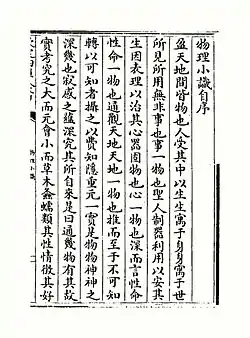 物理小識自序
盈天地間皆物也人受其中以生生寓于身身寓于世
所見所用無非事也事一物也聖人制器利用以安其
生因表理以治其心器固物也心一物也深而言性命
性命一物也通觀天地天地一物也推而至于不可知
轉以可知者攝之以費知隱重元一實是物物神神之
深幾也寂感之蘊深究其所自來是曰通幾物有其故
實考究之大而元會小而草木螽蠕類其性情徵其好